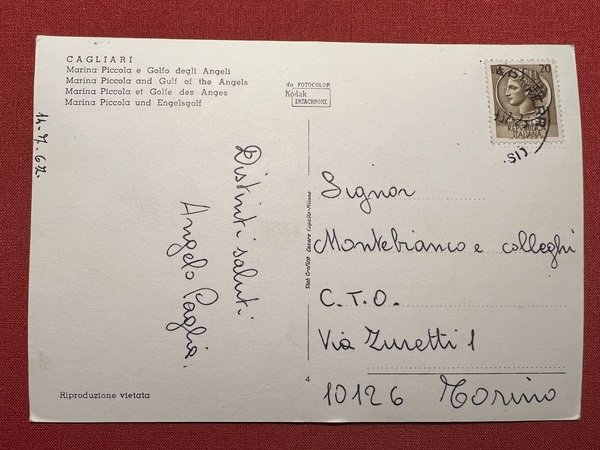 CAGLIARI
Marina Piccola e Golfo degli Angeli
Marina Piccola and Gulf of the Angels
Marina Piccola et Golfe des Anges
Marina Piccola und Engelsgolf
da FOTOCOLOR
Kodak
EKTACHROME
20
REPUBBLICA
ITALIANA
Distinti saluti
Angelo Paglia.
Stab. Grafico Cesare Capello - Milano
Signor
Montebianco e colleghi
C.T.O.
Via Zuretti 1
10126 Torino
4
Riproduzione vietata